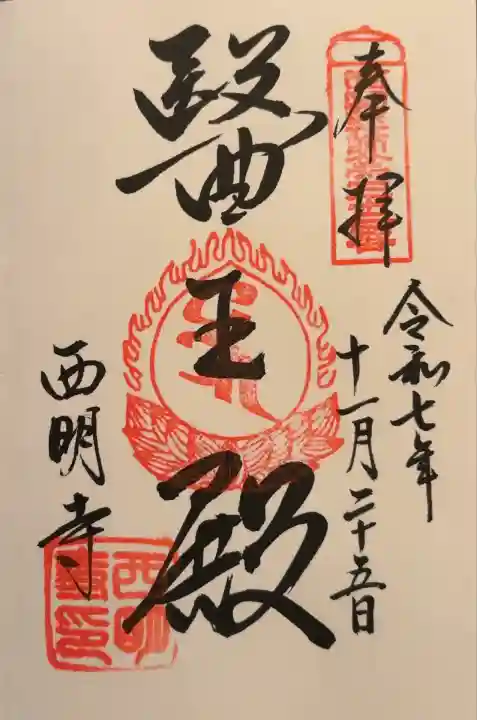 奉拝
令和七年
十一月二十五日
醫王殿
西明寺